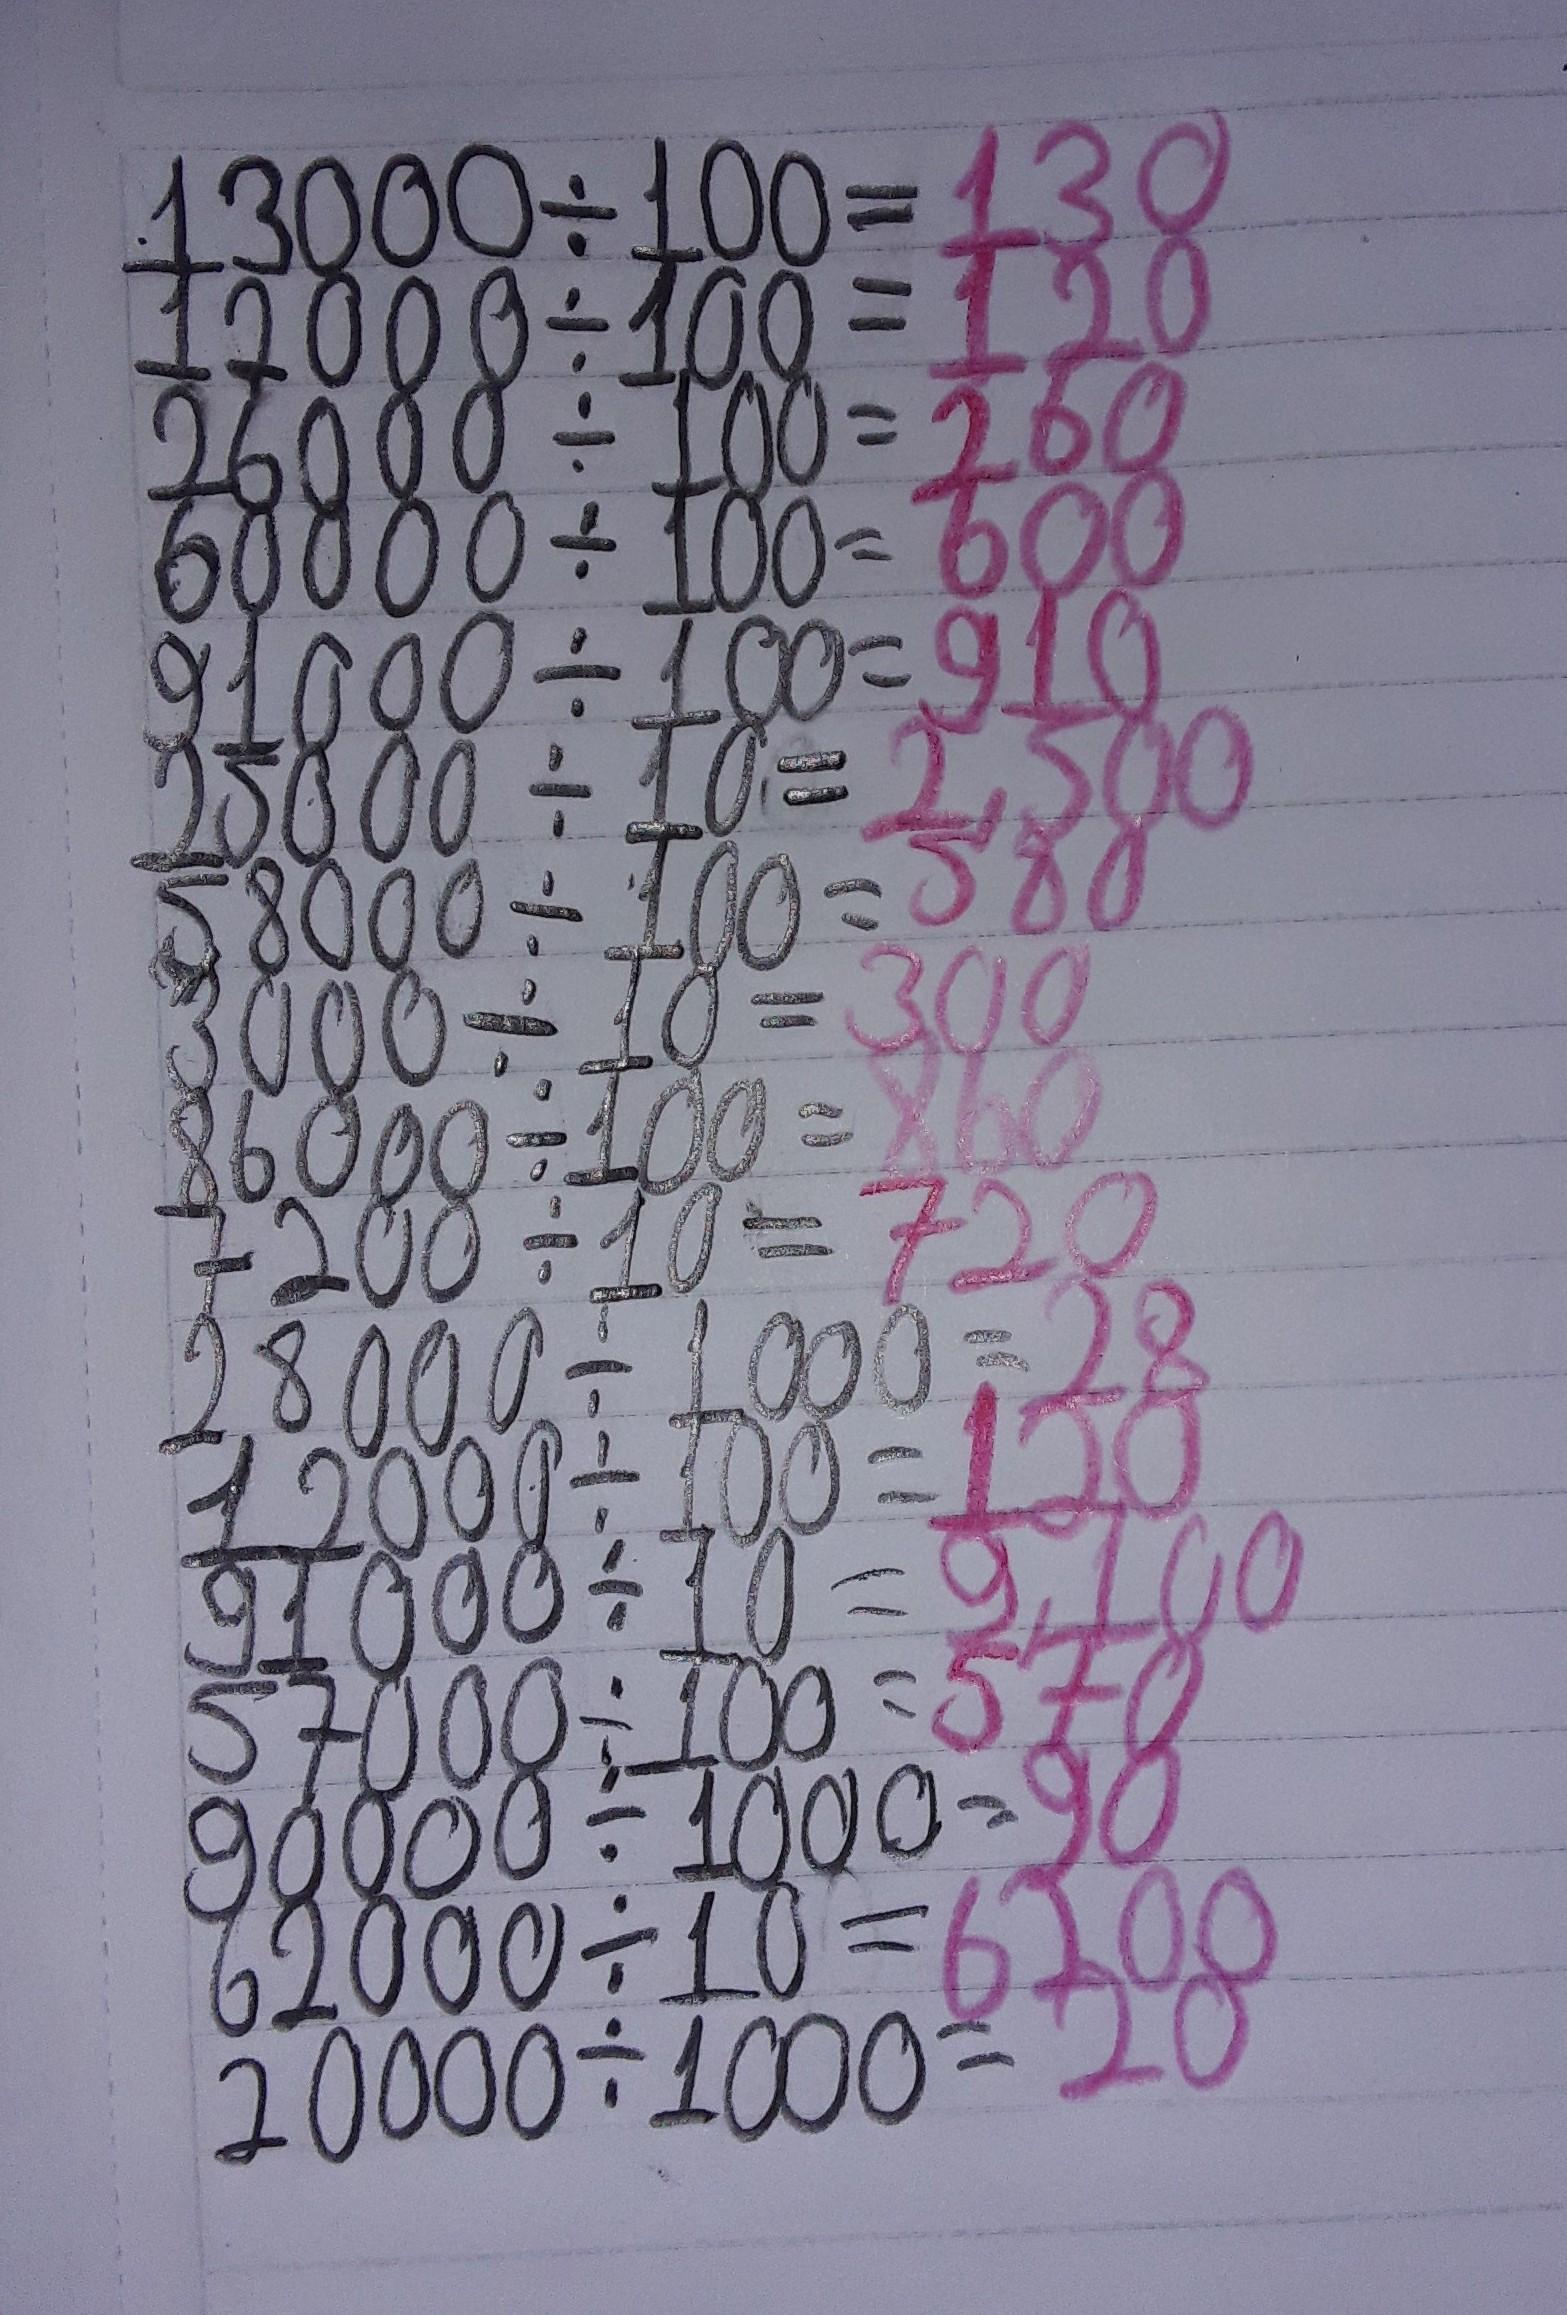 13000÷100=130
12000÷100=120
26000÷100=260
60000÷100=600
91000÷100=910
25000÷10=2,500
58000÷100=580
3000÷10=300
86000÷100=860
7200÷10=720
28000÷1000=28
12000÷100=120
91000÷10=9,100
57000÷100=570
90000÷1000=90
62000÷10=6200
20000÷1000=20